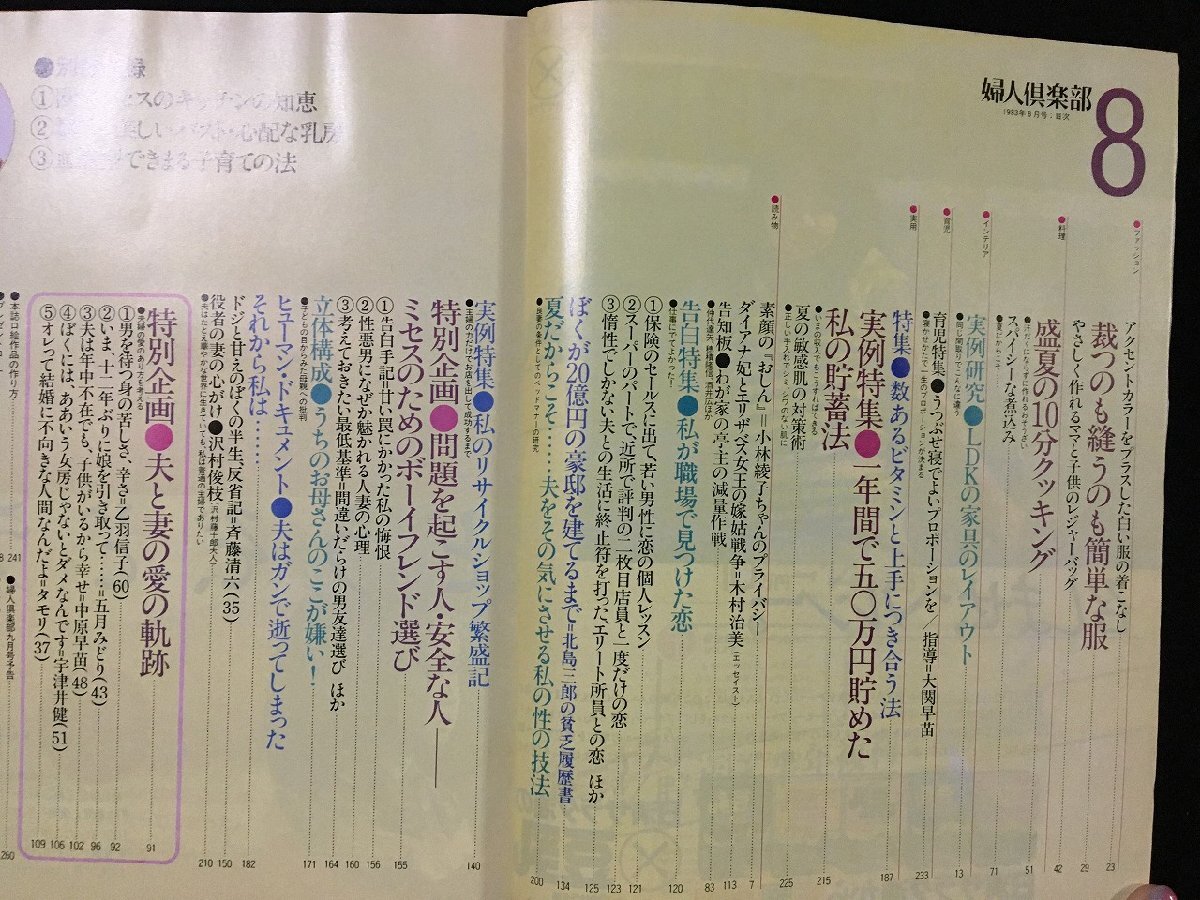 8
婦人倶楽部
1983年8月号・目次
●ファッション
アクセントカラーをプラスした白い服の着こなし 23
裁つのも縫うのも簡単な服 29
やさしく作れるママと子供のレジャーバッグ 42
●料理
盛夏の10分クッキング 51
スパイシーな煮込み 71
●インテリア
実例研究●LDKの家具のレイアウト 13
同じ間取りでこんなに違う
●育児
育児特集●うつぶせ寝でよいプロポーションを/指導=大関早苗 233
●実用
特集●数あるビタミンと上手につき合う法 187
実例特集●一年間で五〇万円貯めた
私の貯蓄法 215
●いまの収入でもこうすればできる
夏の敏感肌の対策術 225
●正しい手入れでシミ、シワのない肌に
●読み物
素顔の『おしん』=小林綾子ちゃんのプライバシー 7
ダイアナ妃とエリザベス女王の嫁姑戦争=木村治美(エッセイスト) 113
告知板●わが家の亭主の減量作戦 83
●仲代達矢、穂積隆信、酒井広ほか
告白特集●私が職場で見つけた恋 120
●仕事にでてよかった!
①保険のセールスに出て、若い男性に恋の個人レッスン 121
②スーパーのパートで、近所で評判の二枚目店員と一度だけの恋 123
③惰性でしかない夫との生活に終止符を打った、エリート所員との恋 ほか 125
ぼくが20億円の豪邸を建てるまで=北島三郎の貧乏履歴書 134
夏だからこそ……夫をその気にさせる私の性の技法 200
●良妻の条件としてのベッドマナーの研究
実例特集●私のリサイクルショップ繁盛記 140
●主婦の力だけでお店を出して成功するまで
特別企画●問題を起こす人・安全な人——
ミセスのためのボーイフレンド選び 155
①告白手記=甘い罠にかかった私の悔恨 156
②性悪男になぜか魅かれる人妻の心理 160
③考えておきたい最低基準=間違いだらけの男友達選び ほか 164
立体構成●うちのお母さんのここが嫌い! 171
●子どもの目からみた母親への批判
ヒューマン・ドキュメント●夫はガンで逝ってしまった
それから私は…… 182
ドジと甘えのぼくの半生、反省記=斉藤清六(35) 150
役者の妻の心がけ●沢村俊枝(沢村藤十郎夫人) 210
●夫はたとえ華やかな世界に生きていても、私は普通の主婦でありたい
特別企画●夫と妻の愛の軌跡 91
●夫婦の愛のあり方を考える
①男を待つ身の苦しさ、辛さ=乙羽信子(60) 92
②いま、十二年ぶりに娘を引き取って……=五月みどり(43) 96
③夫は年中不在でも、子供がいるから幸せ=中原早苗(48) 102
④ぼくには、ああいう女房じゃないとダメなんです=宇津井健(51) 106
⑤オレって結婚に不向きな人間なんだよ=タモリ(37) 109
●本誌口絵作品の作り方 241
●婦人倶楽部九月号予告 260